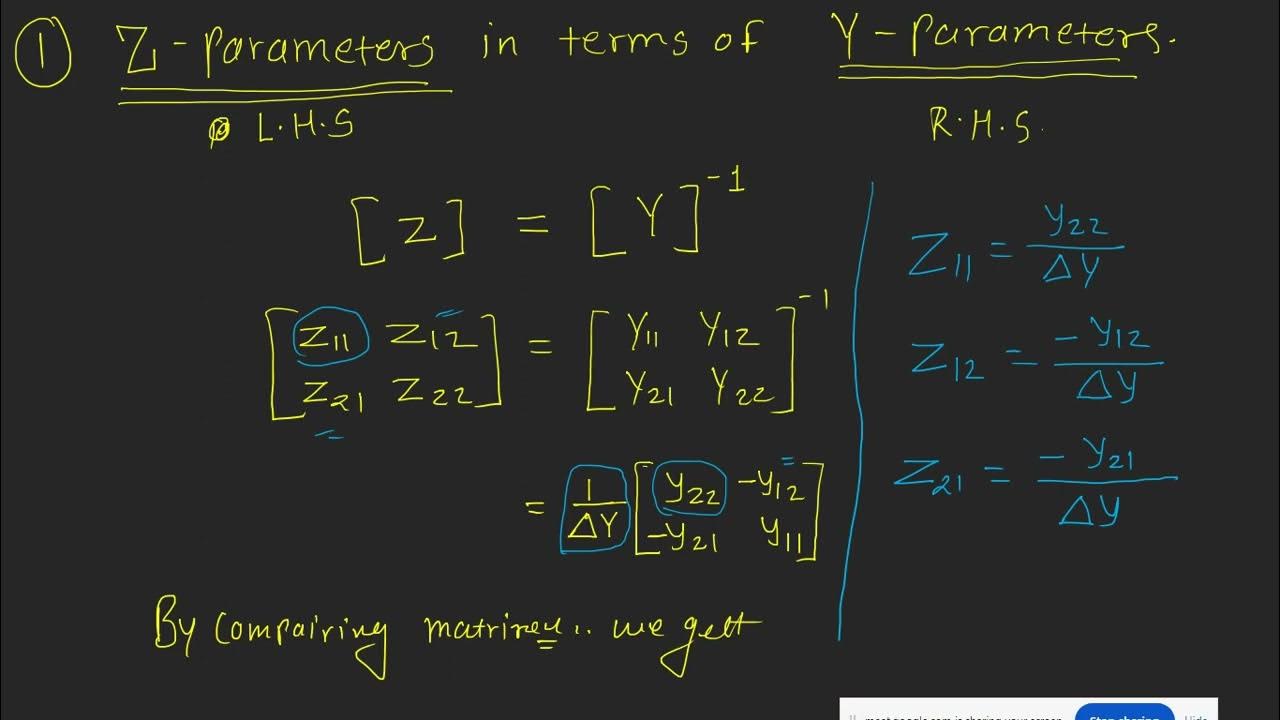 ① Z-parameters in terms of Y-parameters.
L.H.S R.H.S.
[Z] = [Y]⁻¹
[Z11 Z12
Z21 Z22] = [Y11 Y12
Y21 Y22]⁻¹
= 1/ΔY [y22 -y12
-y21 y11]
By compairing matrixes.. we gett
Z11 = y22/ΔY
Z12 = -y12/ΔY
Z21 = -y21/ΔY
meet.google.com is sharing your screen. Stop sharing Hide